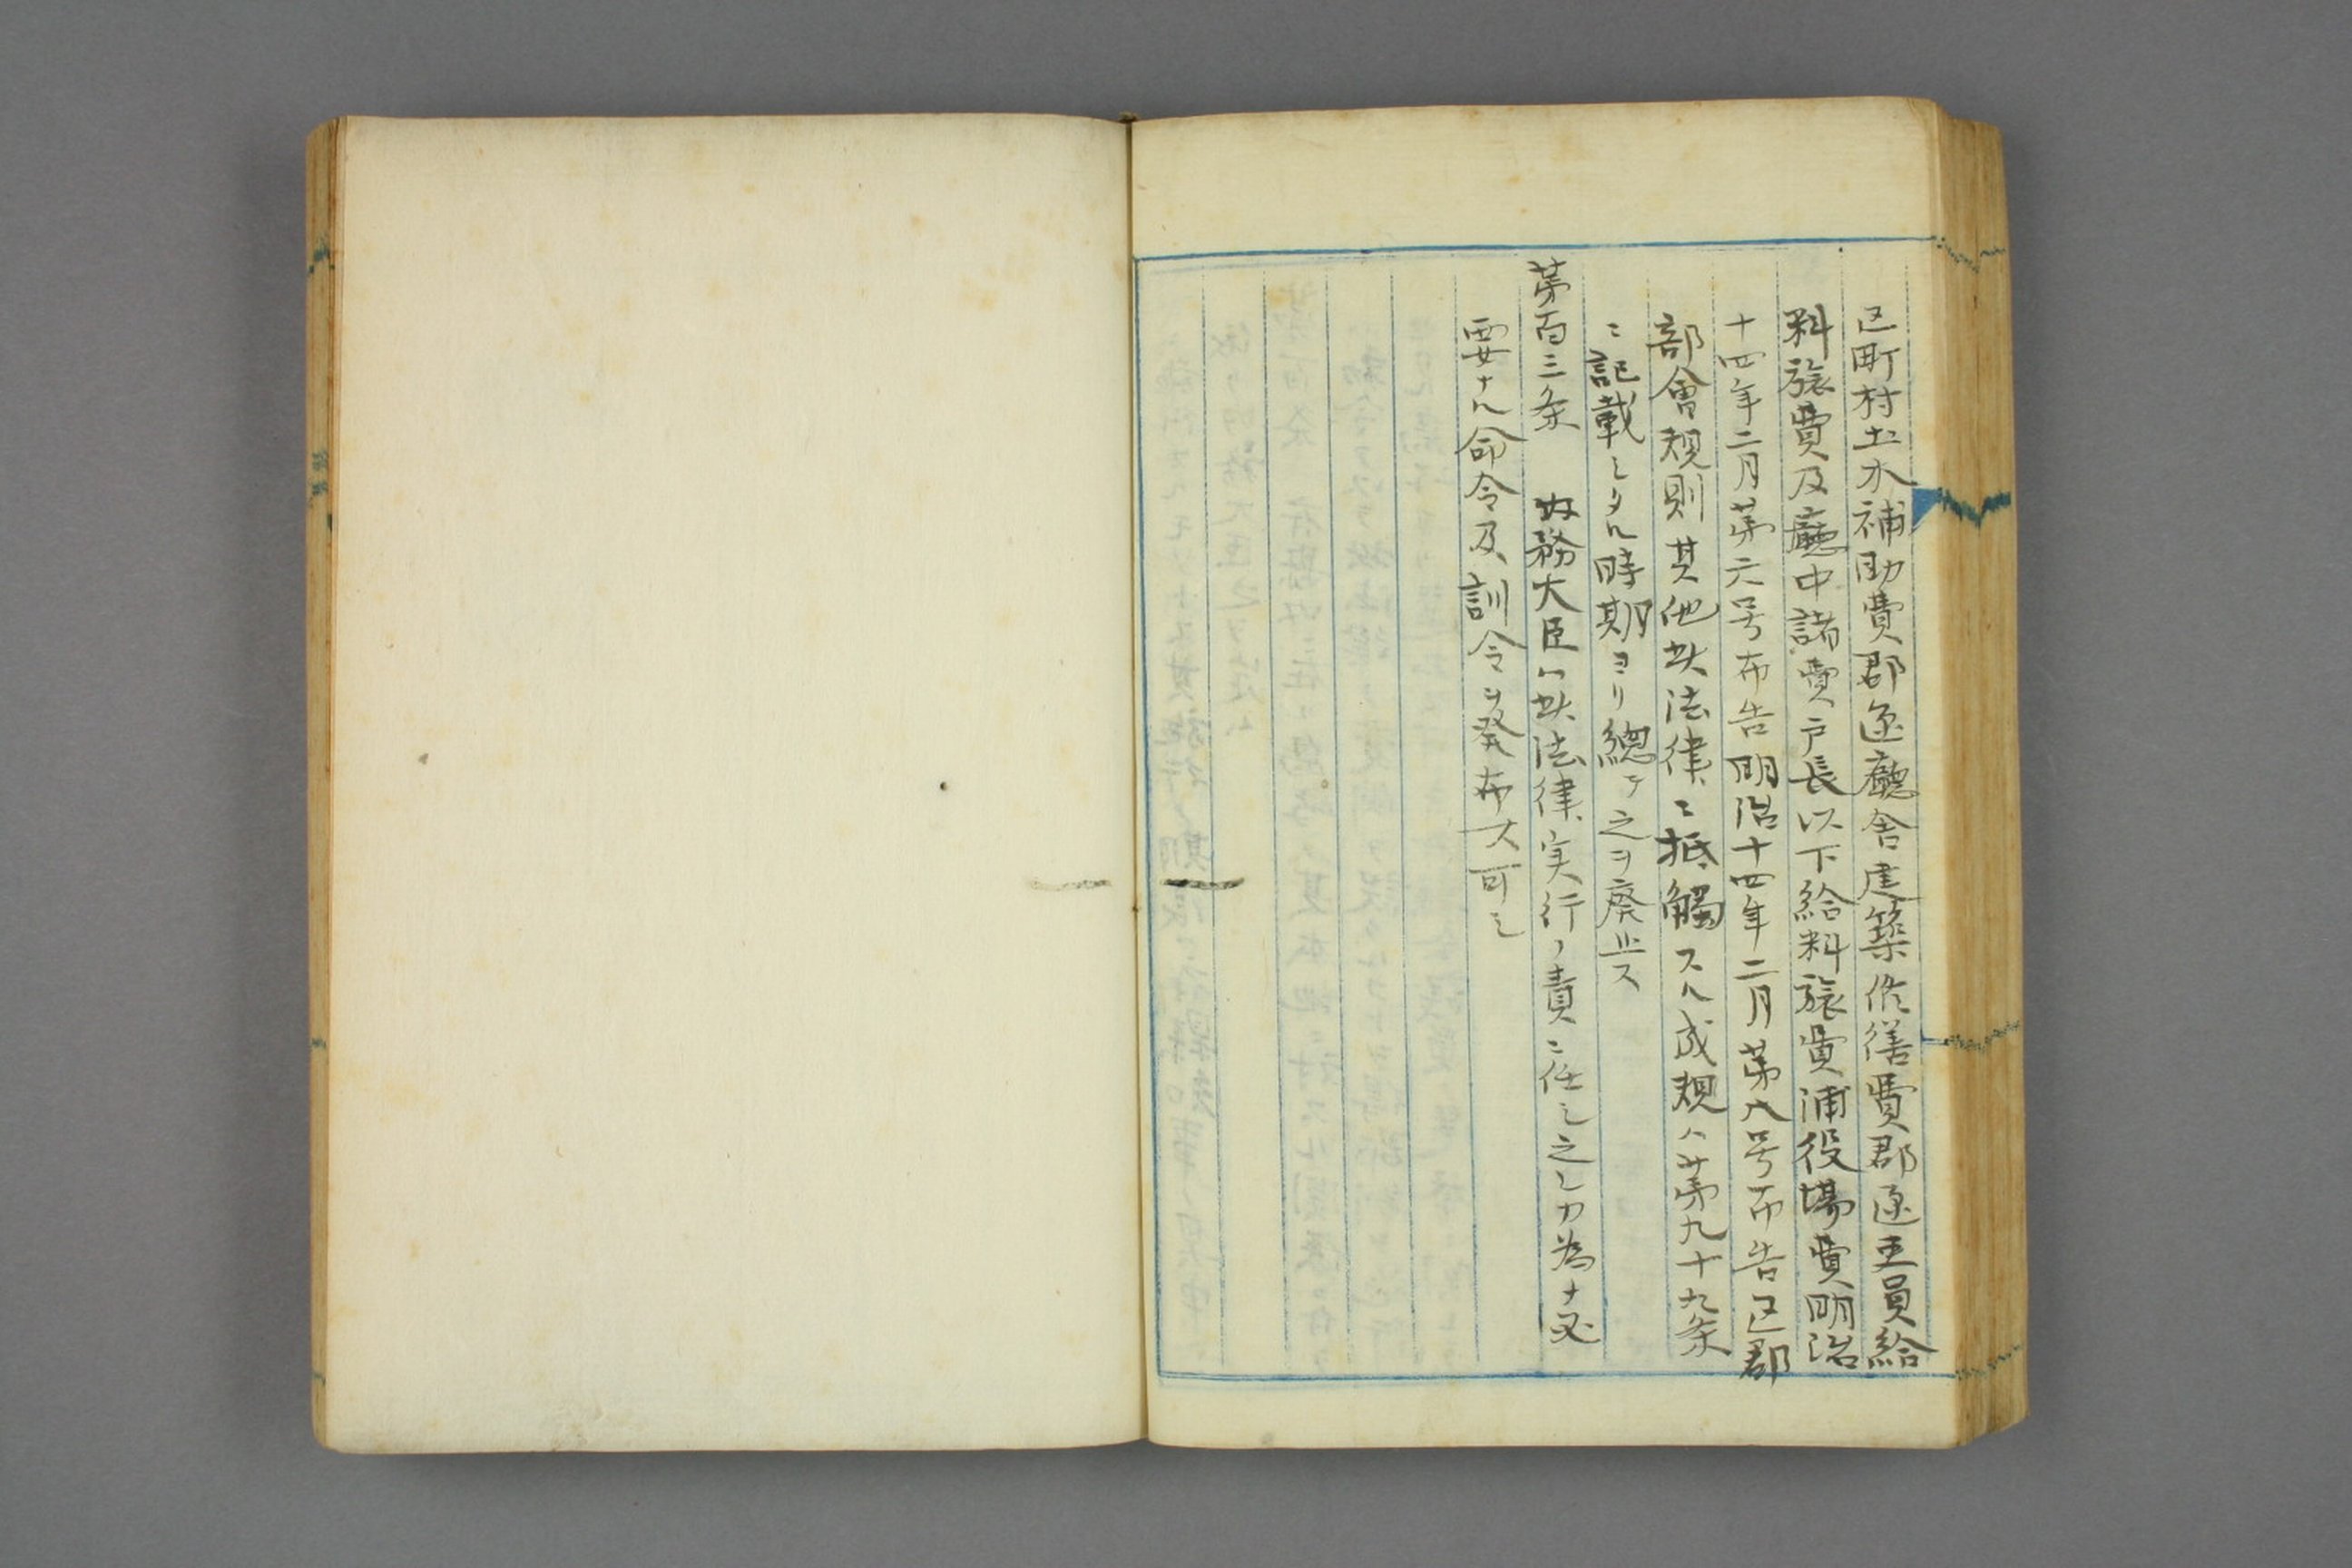 区町村土木補助費郡区廳舎建築修繕費郡区吏員給
料旅費及廳中諸費戸長以下給料旅費浦役場費明治
十四年二月第六号布告明治十四年二月第八号布告区郡
部會規則其他此法律ニ抵觸スル成規ハ第九十九条
ニ記載シタル時期ヨリ總テ之ヲ廃止ス
第百三条 内務大臣ハ此法律実行ノ責ニ任シ之レカ為メ必
要ナル命令及訓令ヲ発布ス可シ